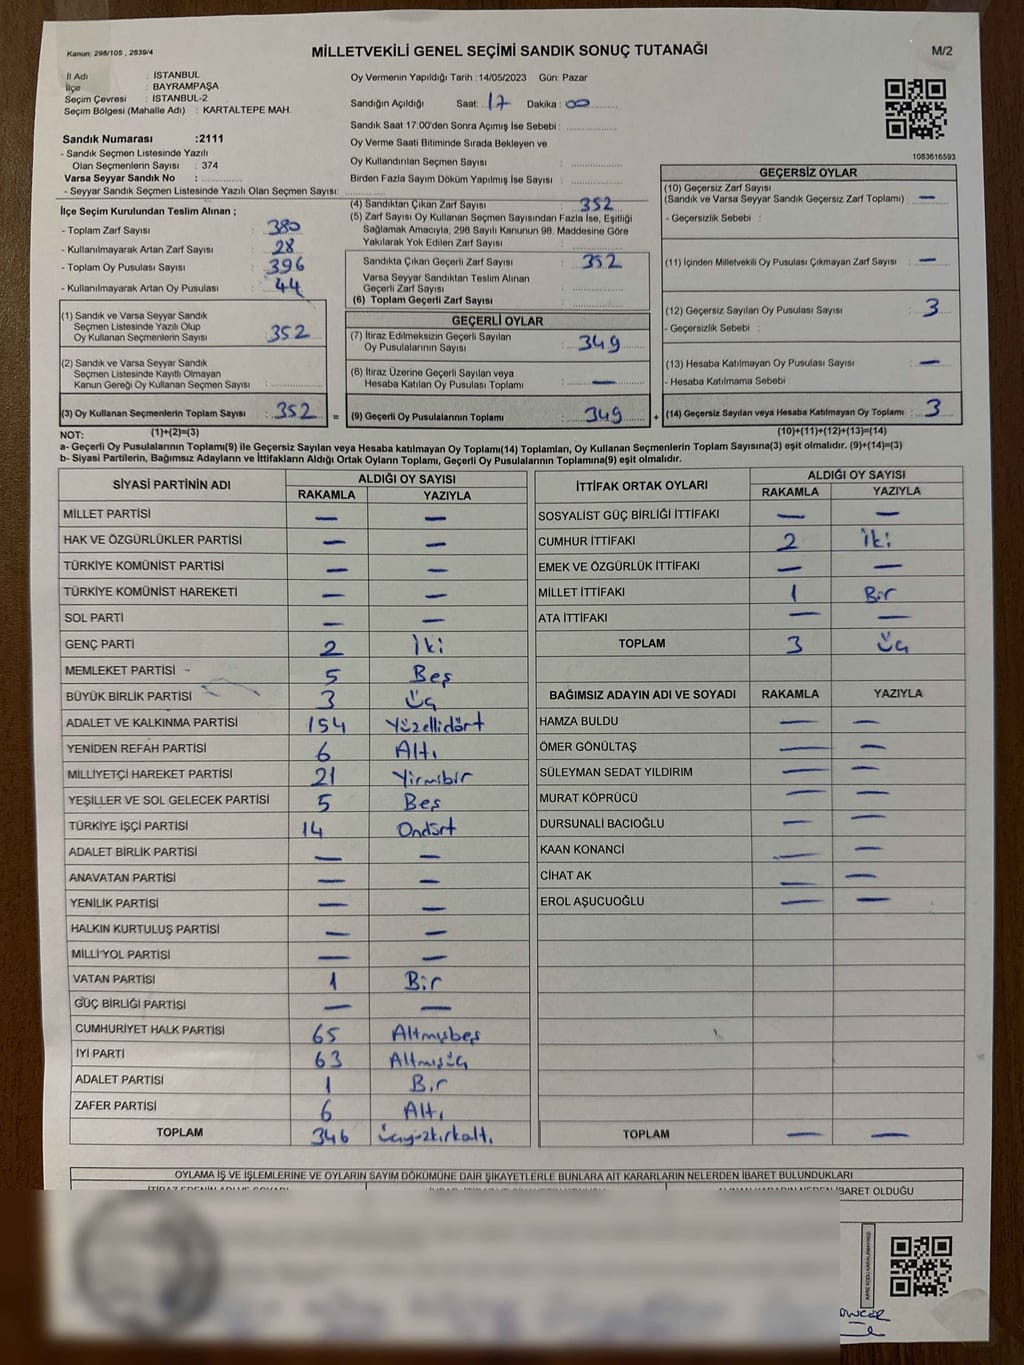 Kanun: 298/105 , 2839/4
MİLLETVEKİLİ GENEL SEÇİMİ SANDIK SONUÇ TUTANAĞI
M/2
İl Adı : İSTANBUL
İlçe : BAYRAMPAŞA
Seçim Çevresi : İSTANBUL-2
Seçim Bölgesi (Mahalle Adı) : KARTALTEPE MAH.
Sandık Numarası :2111
- Sandık Seçmen Listesinde Yazılı
Olan Seçmenlerin Sayısı : 374
Varsa Seyyar Sandık No :
- Seyyar Sandık Seçmen Listesinde Yazılı Olan Seçmen Sayısı:
Oy Vermenin Yapıldığı Tarih : 14/05/2023 Gün: Pazar
Sandığın Açıldığı Saat: 17 Dakika : 00
Sandık Saat 17:00'den Sonra Açımış İse Sebebi :
Oy Verme Saati Bitiminde Sırada Bekleyen ve
Oy Kullandırılan Seçmen Sayısı :
Birden Fazla Sayım Döküm Yapılmış İse Sayısı :
1083616593
İlçe Seçim Kurulundan Teslim Alınan ;
- Toplam Zarf Sayısı : 380
- Kullanılmayarak Artan Zarf Sayısı : 28
- Toplam Oy Pusulası Sayısı : 396
- Kullanılmayarak Artan Oy Pusulası : 44
(1) Sandık ve Varsa Seyyar Sandık
Seçmen Listesinde Yazılı Olup
Oy Kullanan Seçmenlerin Sayısı : 352
(2) Sandık ve Varsa Seyyar Sandık
Seçmen Listesinde Kayıtlı Olmayan
Kanun Gereği Oy Kullanan Seçmen Sayısı :
(3) Oy Kullanan Seçmenlerin Toplam Sayısı : 352
(1)+(2)=(3)
(4) Sandıktan Çıkan Zarf Sayısı : 352
(5) Zarf Sayısı Oy Kullanan Seçmen Sayısından Fazla İse, Eşitliği
Sağlamak Amacıyla; 298 Sayılı Kanunun 98. Maddesine Göre
Yakılarak Yok Edilen Zarf Sayısı :
Sandıkta Çıkan Geçerli Zarf Sayısı : 352
Varsa Seyyar Sandıktan Teslim Alınan
Geçerli Zarf Sayısı :
(6) Toplam Geçerli Zarf Sayısı :
GEÇERLİ OYLAR
(7) İtiraz Edilmeksizin Geçerli Sayılan
Oy Pusulalarının Sayısı : 349
(8) İtiraz Üzerine Geçerli Sayılan veya
Hesaba Katılan Oy Pusulası Toplamı : —
= (9) Geçerli Oy Pusulalarının Toplamı : 349 +
GEÇERSİZ OYLAR
(10) Geçersiz Zarf Sayısı
(Sandık ve Varsa Seyyar Sandık Geçersiz Zarf Toplamı) : —
- Geçersizlik Sebebi :
(11) İçinden Milletvekili Oy Pusulası Çıkmayan Zarf Sayısı : —
(12) Geçersiz Sayılan Oy Pusulası Sayısı : 3
- Geçersizlik Sebebi :
(13) Hesaba Katılmayan Oy Pusulası Sayısı : —
- Hesaba Katılmama Sebebi :
(14) Geçersiz Sayılan veya Hesaba Katılmayan Oy Toplamı : 3
(10)+(11)+(12)+(13)=(14)
NOT:
a- Geçerli Oy Pusulalarının Toplamı(9) ile Geçersiz Sayılan veya Hesaba katılmayan Oy Toplamı(14) Toplamları, Oy Kullanan Seçmenlerin Toplam Sayısına(3) eşit olmalıdır. (9)+(14)=(3)
b- Siyasi Partilerin, Bağımsız Adayların ve İttifakların Aldığı Ortak Oyların Toplamı, Geçerli Oy Pusulalarının Toplamına(9) eşit olmalıdır.
SİYASİ PARTİNİN ADI ALDIĞI OY SAYISI
RAKAMLA YAZIYLA
MİLLET PARTİSİ — —
HAK VE ÖZGÜRLÜKLER PARTİSİ — —
TÜRKİYE KOMÜNİST PARTİSİ — —
TÜRKİYE KOMÜNİST HAREKETİ — —
SOL PARTİ — —
GENÇ PARTİ 2 İki
MEMLEKET PARTİSİ 5 Beş
BÜYÜK BİRLİK PARTİSİ 3 Üç
ADALET VE KALKINMA PARTİSİ 154 Yüzellidört
YENİDEN REFAH PARTİSİ 6 Altı
MİLLİYETÇİ HAREKET PARTİSİ 21 Yirmibir
YEŞİLLER VE SOL GELECEK PARTİSİ 5 Beş
TÜRKİYE İŞÇİ PARTİSİ 14 Ondört
ADALET BİRLİK PARTİSİ — —
ANAVATAN PARTİSİ — —
YENİLİK PARTİSİ — —
HALKIN KURTULUŞ PARTİSİ — —
MİLLİ YOL PARTİSİ — —
VATAN PARTİSİ 1 Bir
GÜÇ BİRLİĞİ PARTİSİ — —
CUMHURİYET HALK PARTİSİ 65 Altmışbeş
İYİ PARTİ 63 Altmışüç
ADALET PARTİSİ 1 Bir
ZAFER PARTİSİ 6 Altı
TOPLAM 346 Üçyüzkırkaltı
İTTİFAK ORTAK OYLARI ALDIĞI OY SAYISI
RAKAMLA YAZIYLA
SOSYALİST GÜÇ BİRLİĞİ İTTİFAKI — —
CUMHUR İTTİFAKI 2 İki
EMEK VE ÖZGÜRLÜK İTTİFAKI — —
MİLLET İTTİFAKI 1 Bir
ATA İTTİFAKI — —
TOPLAM 3 Üç
BAĞIMSIZ ADAYIN ADI VE SOYADI RAKAMLA YAZIYLA
HAMZA BULDU — —
ÖMER GÖNÜLTAŞ — —
SÜLEYMAN SEDAT YILDIRIM — —
MURAT KÖPRÜCÜ — —
DURSUNALİ BACIOĞLU — —
KAAN KONANCİ — —
CİHAT AK — —
EROL AŞUCUOĞLU — —
TOPLAM — —
OYLAMA İŞ VE İŞLEMLERİNE VE OYLARIN SAYIM DÖKÜMÜNE DAİR ŞİKAYETLERLE BUNLARA AİT KARARLARIN NELERDEN İBARET BULUNDUKLARI
İBARET OLDUĞU